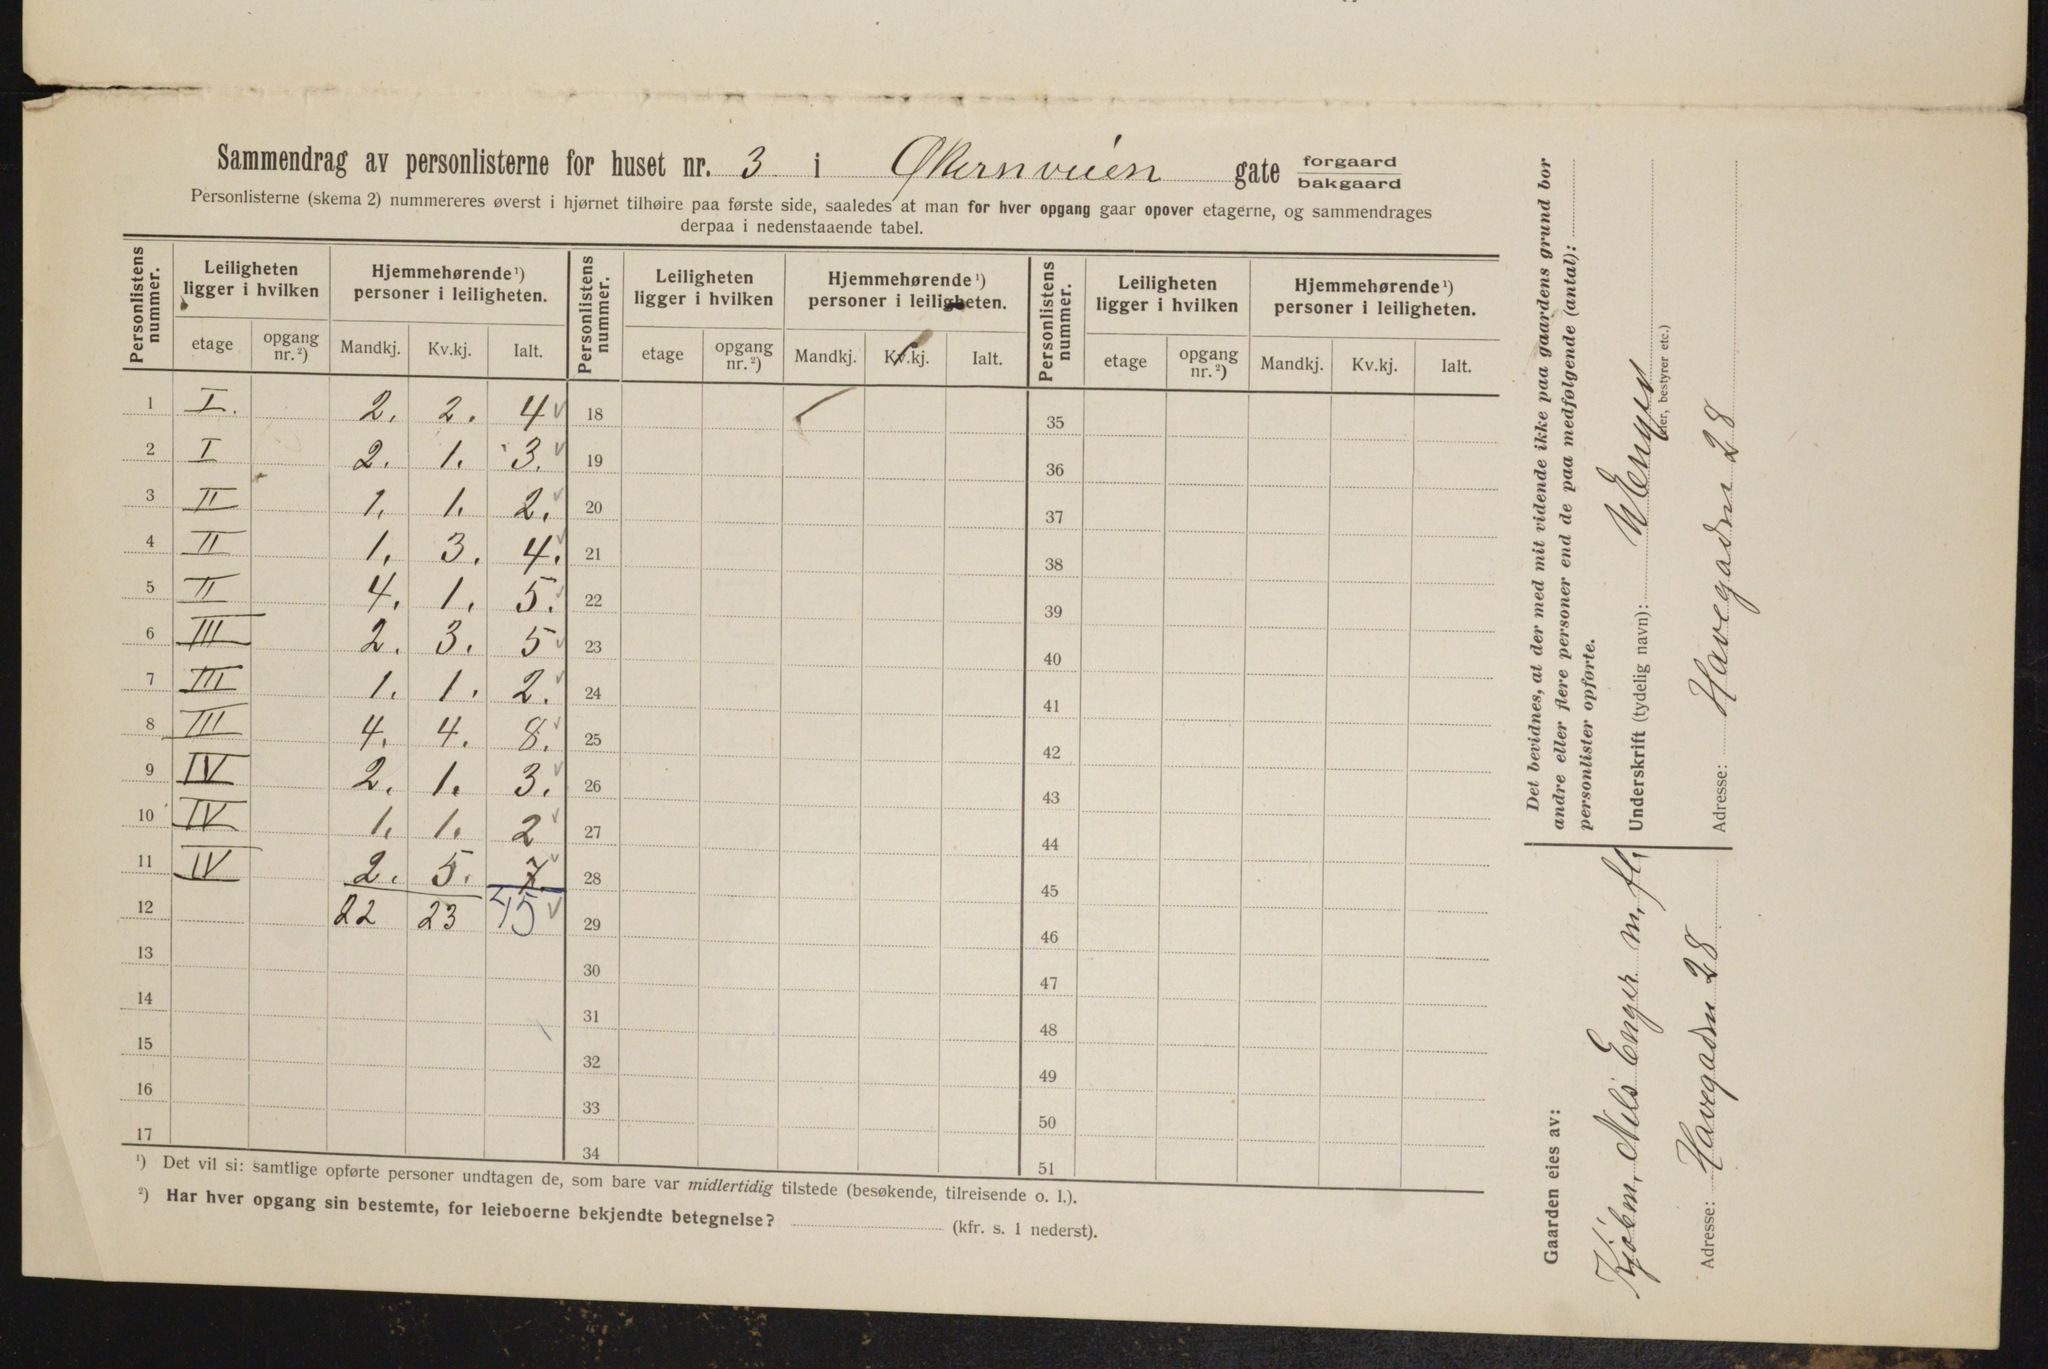 Sammendrag av personlisterne for huset nr. 3 i Økernveien gate forgaard
bakgaard
Personlisterne (skema 2) nummereres øverst i hjørnet tilhøire paa første side, saaledes at man for hver opgang gaar opover etagerne, og sammendrages
derpaa i nedenstaaende tabel.
Personlistens nummer. Leiligheten ligger i hvilken Hjemmehørende¹) personer i leiligheten. Personlistens nummer. Leiligheten ligger i hvilken Hjemmehørende¹) personer i leiligheten. Personlistens nummer. Leiligheten ligger i hvilken Hjemmehørende¹) personer i leiligheten.
etage opgang nr.²) Mandkj. Kv.kj. Ialt. etage opgang nr.²) Mandkj. Kv.kj. Ialt. etage opgang nr.²) Mandkj. Kv.kj. Ialt.
1 I. 2. 2. 4 18 35
2 I 2. 1. 3. 19 36
3 II 1. 1. 2. 20 37
4 II 1. 3. 4. 21 38
5 II 4. 1. 5. 22 39
6 III 2. 3. 5 23 40
7 III 1. 1. 2. 24 41
8 III 4. 4. 8. 25 42
9 IV 2. 1. 3. 26 43
10 IV 1. 1. 2 27 44
11 IV 2. 5. 7 28 45
12 22 23 45 29 46
13 30 47
14 31 48
15 32 49
16 33 50
17 34 51
¹) Det vil si: samtlige opførte personer undtagen de, som bare var midlertidig tilstede (besøkende, tilreisende o. l.).
²) Har hver opgang sin bestemte, for leieboerne bekjendte betegnelse? (kfr. s. 1 nederst).
Det bevidnes, at der med mit vidende ikke paa gaardens grund bor
andre eller flere personer end de paa medfølgende (antal):
personlister opførte.
Underskrift (tydelig navn): N Enger
(eier, bestyrer etc.)
Adresse: Havegaden 28
Gaarden eies av:
Kjøbm. Nils Enger m. fl.
Adresse: Havegaden 28